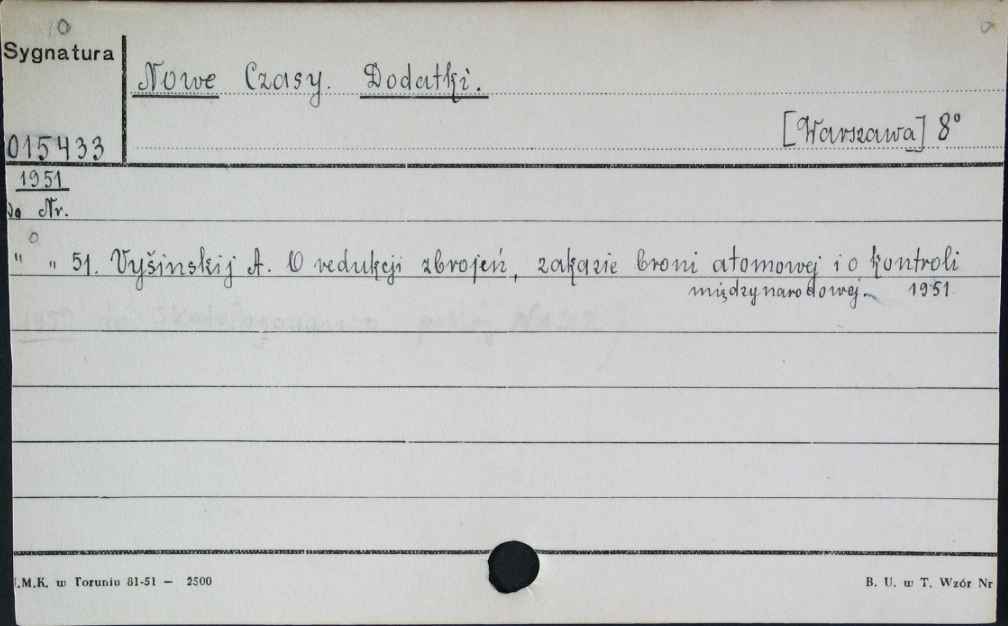 0
Sygnatura
Nowe Czasy. Dodatki.
[Warszawa] 8°
015433
1951
do Nr.
0
" " 51. Vyšinskij A. O redukcji zbrojeń, zakazie broni atomowej i o kontroli
międzynarodowej. 1951
U.M.K. w Toruniu 81-51 — 2500
B. U. w T. Wzór Nr